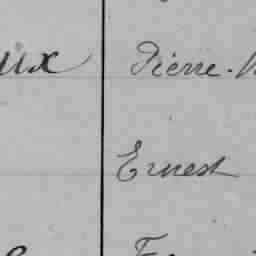 ux Pierre.
Ernest